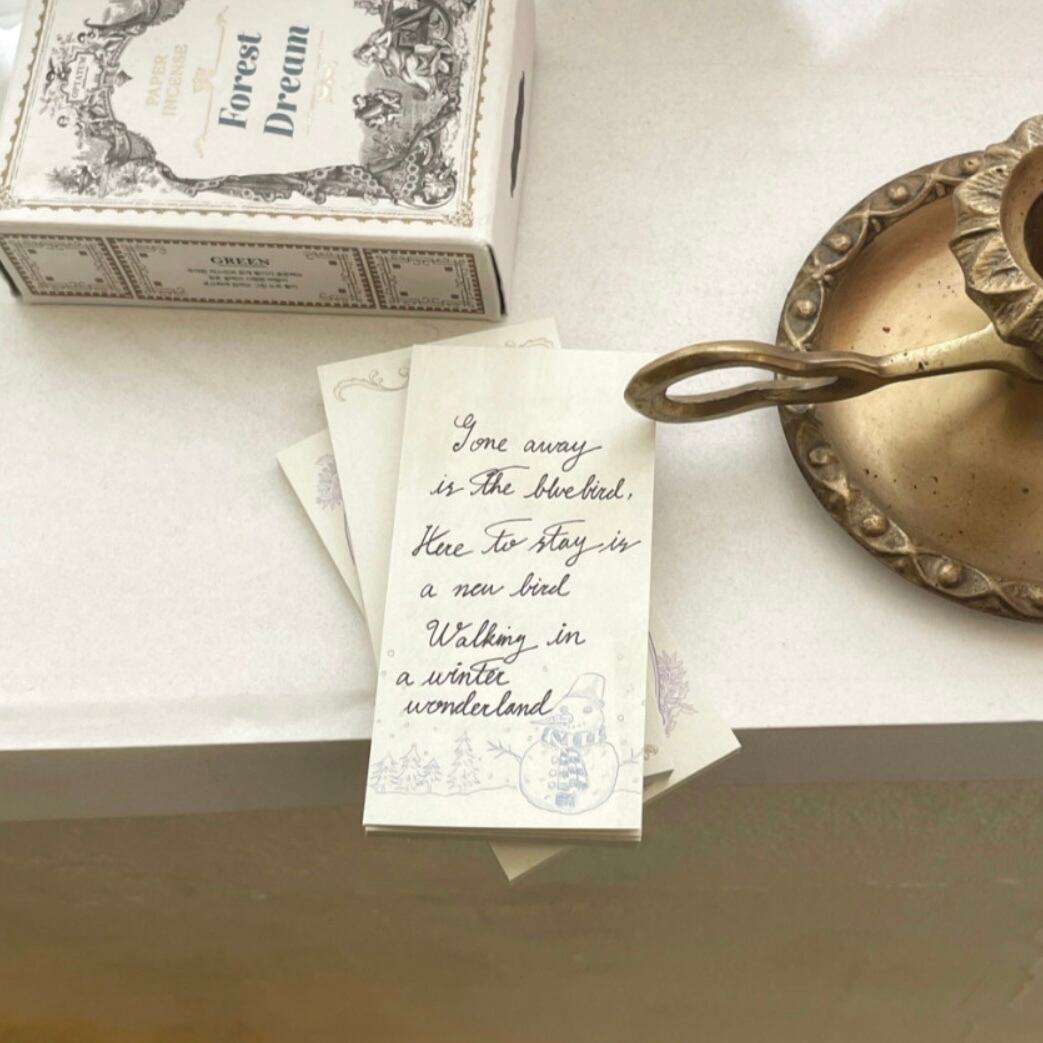 OPTATUM
PAPER
INCENSE
Forest
Dream
GREEN
Gone away
is the bluebird,
Here to stay is
a new bird
Walking in
a winter
wonderland